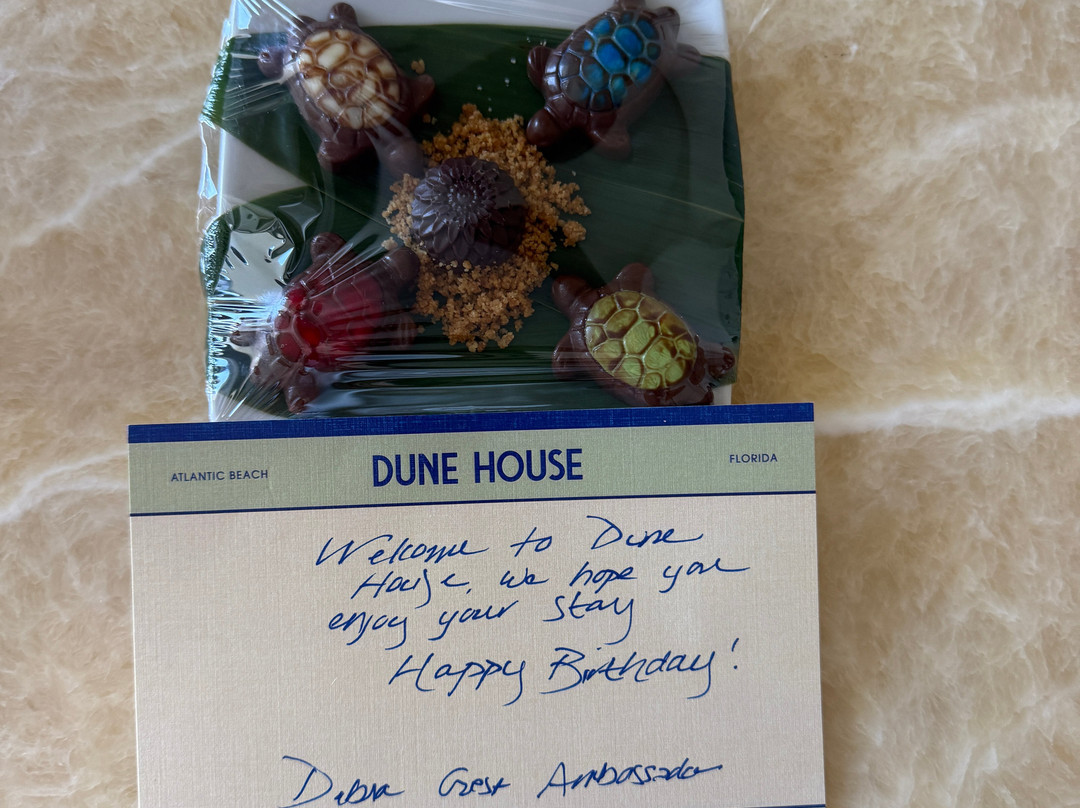 ATLANTIC BEACH DUNE HOUSE FLORIDA
Welcome to Dune
House, we hope you
enjoy your stay
Happy Birthday!
Debra Guest Ambassador